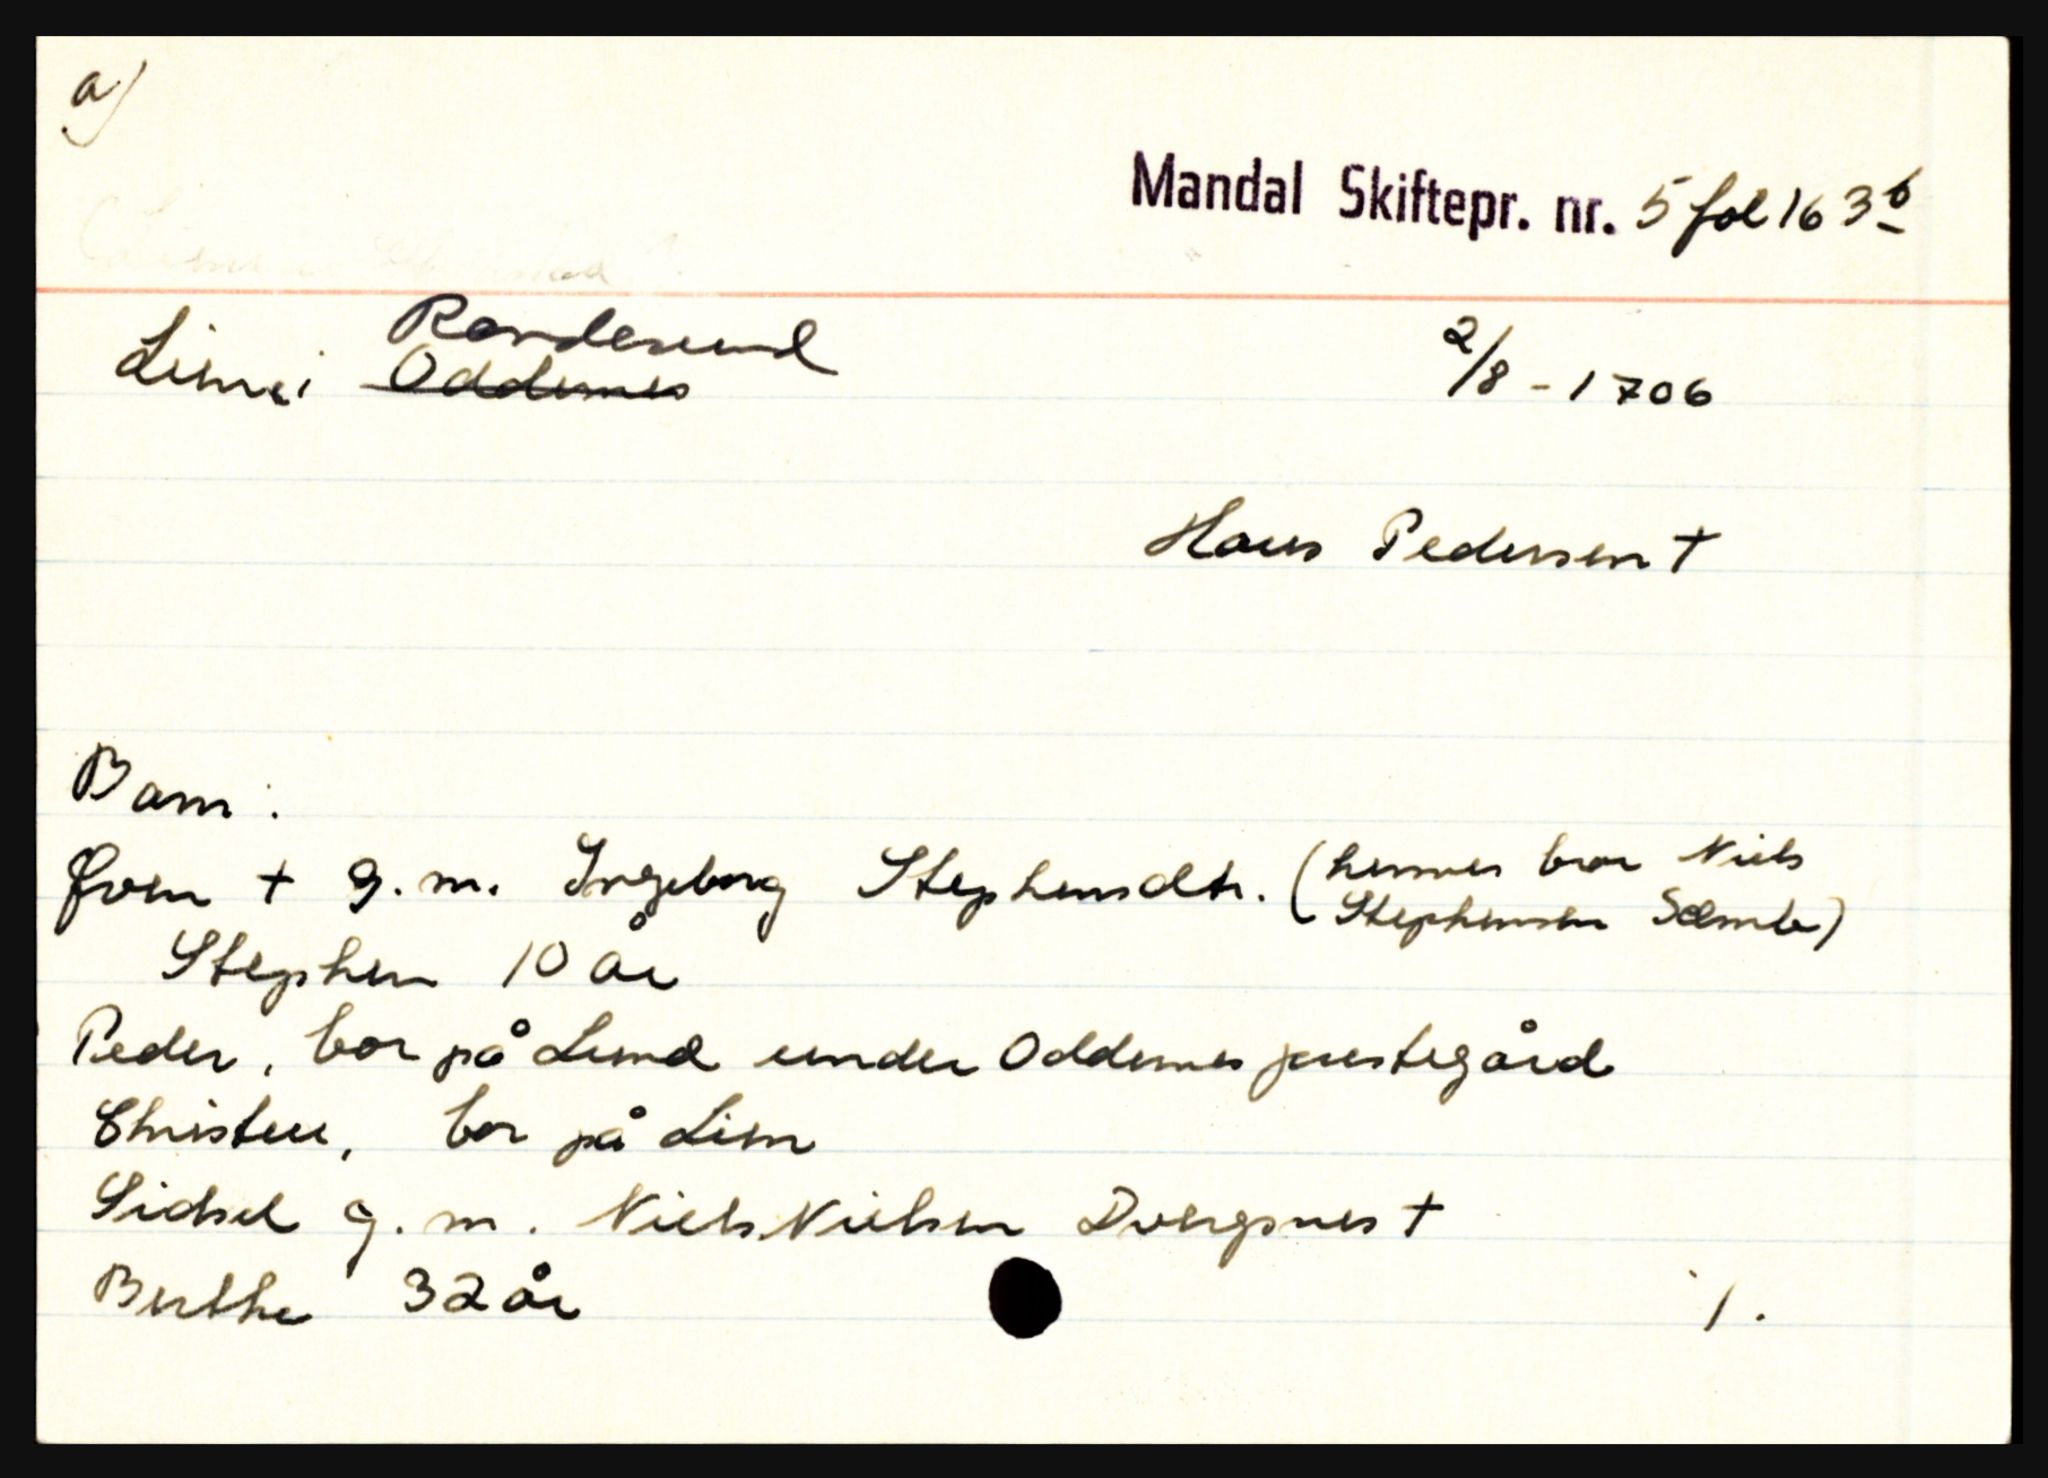 a)
Mandal Skiftepr. nr. 5 fol 163b
Randesund
Lian i Oddernes 2/8 - 1706
Hans Pedersen +
Barn:
Även + g. m. Ingeborg Stephensdtr. (hennes bror Niels
Stephensen Sæmb)
Stephen 10 år
Peder, bor på Lund under Oddernes prestegård
Christen, bor på Lian
Sidsel g. m. Niels Nielsen Dvergsnes +
Berthe 32 år
1.